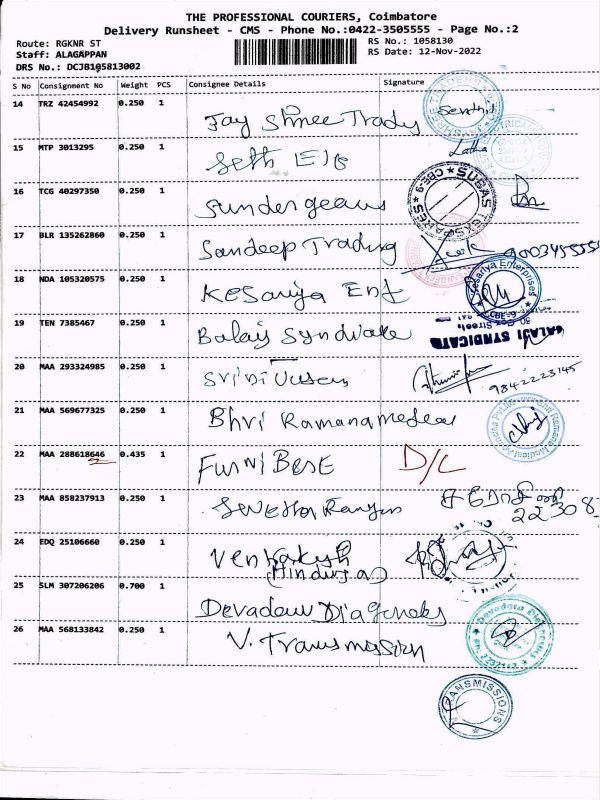 THE PROFESSIONAL COURIERS, Coimbatore
Delivery Runsheet - CMS - Phone No.:0422-3505555 - Page No.:2
Route: RGKNR ST
RS No.: 1058130
Staff: ALAGAPPAN
RS Date: 12-Nov-2022
DRS No.: DCJB105813002
S No Consignment No Weight PCS Consignee Details Signature
14 TRZ 42454992 0.250 1
Jay Shree Trady
15 MTP 3013295 0.250 1 Latha
Seth
16 TCG 40297350 0.250 1
SUBAS TEX SPARES CBE-9
Sundergeaus
17 BLR 135262860 0.250 1
Sandeep Trading
18 NDA 105320575 0.250 1
Kesariya Ent
Kesariya Enterprises CBE-9
19 TEN 7385467 0.250 1
Balaji Syndicate
BALAJI SYNDICATE
20 MAA 293324985 0.250 1
9842223145
21 MAA 569677325 0.250 1
Bhri Ramana
22 MAA 288618646 0.435 1
Furni Best D/L
23 MAA 858237913 0.250 1
24 EDQ 25106660 0.250 1
Venkatesh
(Hinduja)
25 SLM 307206206 0.700 1
26 MAA 568133842 0.250 1
V. Transmission
TRANSMISSIONS